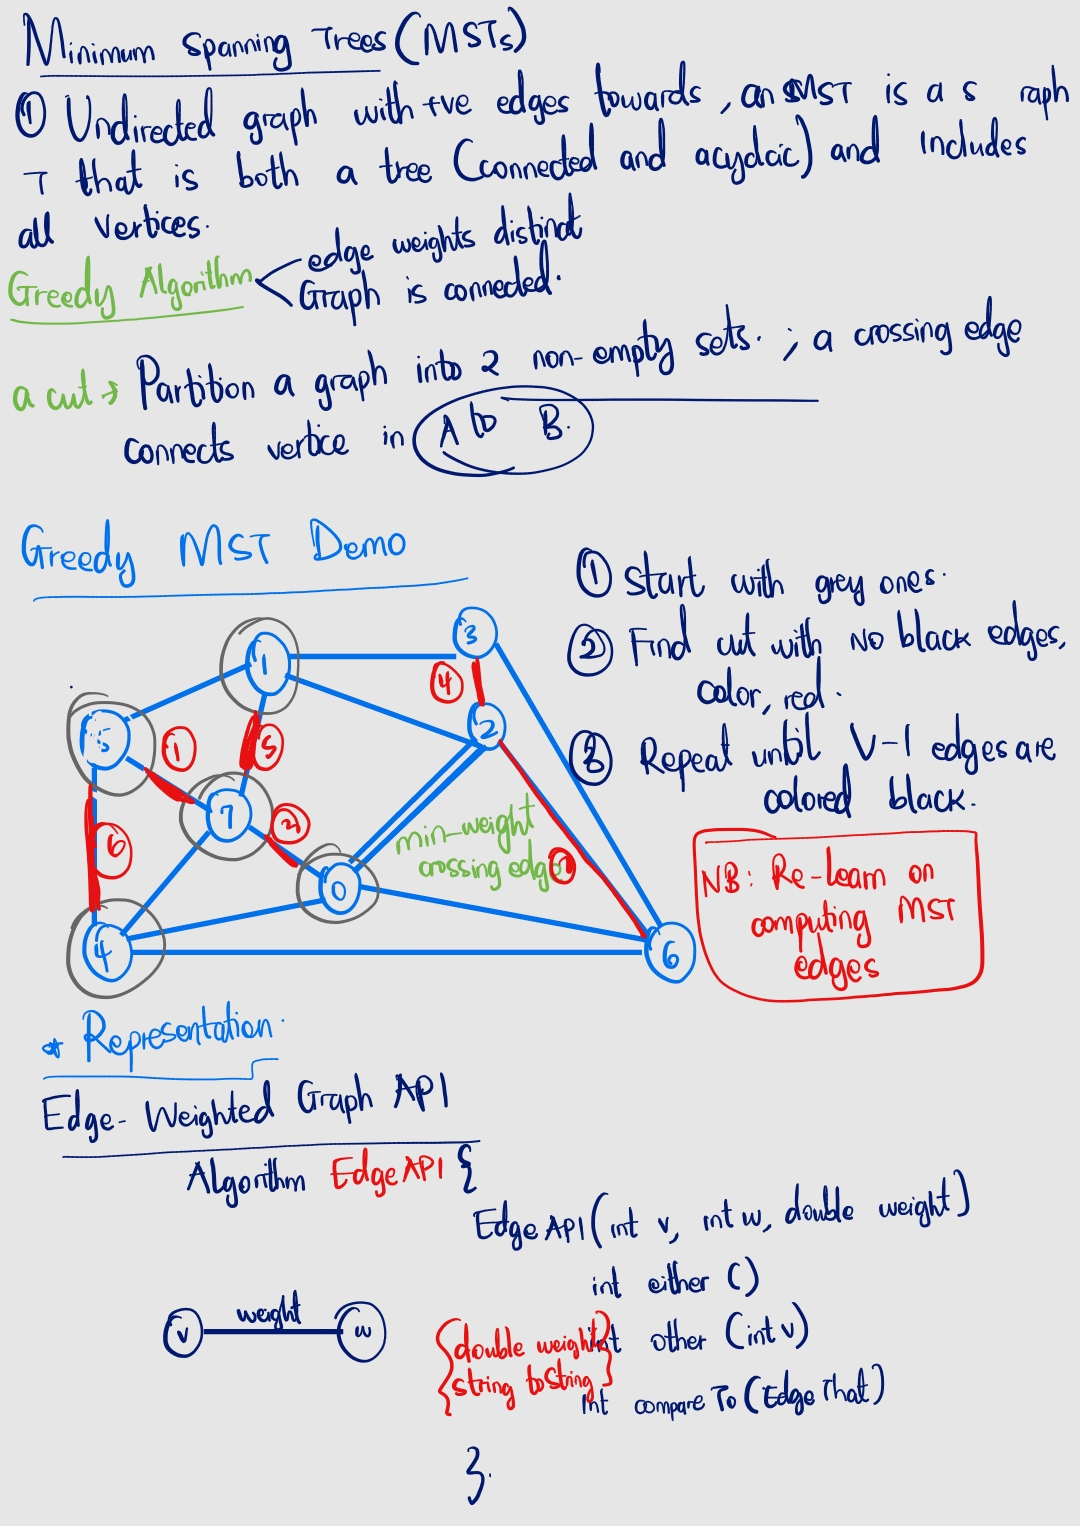 Minimum Spanning Trees (MSTs)
① Undirected graph with +ve edges towards, an MST is a s raph
T that is both a tree (connected and acydcic) and Includes
all vertices.
Greedy Algorithm
edge weights distinct
Graph is connected.
a cut → Partition a graph into 2 non-empty sets. ; a crossing edge
connects vertice in A to B.
Greedy MST Demo
① Start with grey ones.
② Find cut with NO black edges,
color, red.
③ Repeat until V-1 edges are
colored black.
1
3
4
2
5
1
5
7
2
6
0
min-weight
crossing edge
4
6
NB: Re-learn on
computing MST
edges
* Representation.
Edge-Weighted Graph API
Algorithm EdgeAPI {
EdgeAPI (int v, int w, double weight)
int either ()
int other (int v)
int compareTo (Edge That)
{double weight}
{string toString}
v weight w
}.